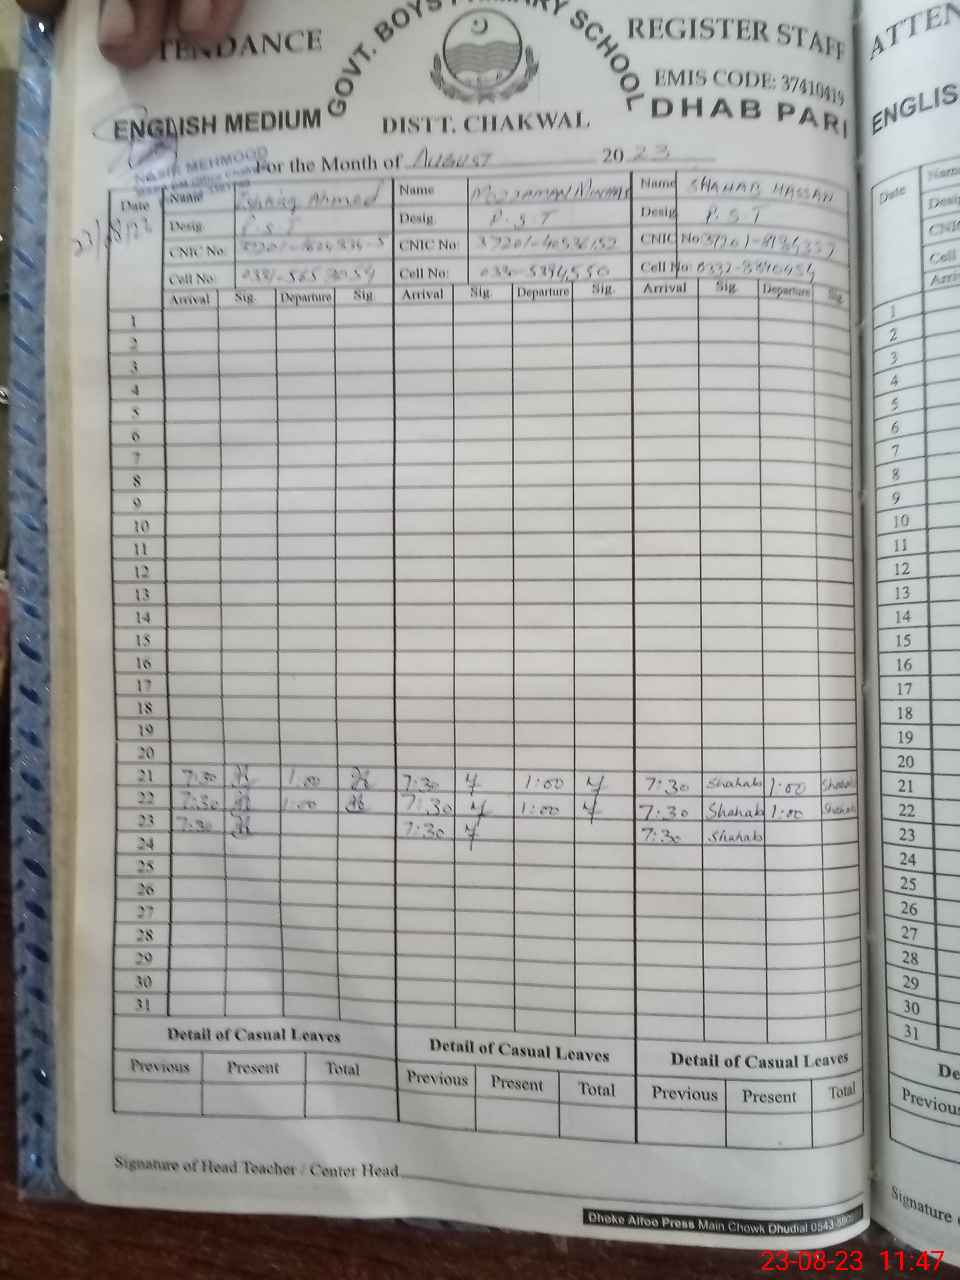 ATTENDANCE GOVT. BOYS PRIMARY SCHOOL REGISTER STAFF
EMIS CODE: 37410419
ENGLISH MEDIUM DISTT. CHAKWAL DHAB PARI
For the Month of AUGUST 2023
MEHMOOD
23/8/23
Date Name Ishtiaq Ahmed Name Name SHAHAB HASSAN
Desig P.S.T Desig P.S.T Desig P.S.T
CNIC No: CNIC No: CNIC No
Cell No: Cell No: Cell No:
Arrival Sig. Departure Sig. Arrival Sig. Departure Sig. Arrival Sig. Departure Sig
1
2
3
4
5
6
7
8
9
10
11
12
13
14
15
16
17
18
19
20
21 7:30 1:00 7:30 1:00 7:30 Shahab 1:00 Shahab
22 7:30 1:00 7:30 1:00 7:30 Shahab 1:00 Shahab
23 7:30 7:30 7:30 Shahab
24
25
26
27
28
29
30
31
Detail of Casual Leaves Detail of Casual Leaves Detail of Casual Leaves
Previous Present Total Previous Present Total Previous Present Total
Signature of Head Teacher / Center Head
Dhoke Alfoo Press Main Chowk Dhudial 0543-
ATTEN
ENGLIS
Date Name
Desig
CNIC
Cell
Arri
1
2
3
4
5
6
7
8
9
10
11
12
13
14
15
16
17
18
19
20
21
22
23
24
25
26
27
28
29
30
31
De
Previous
Signature
23-08-23 11:47